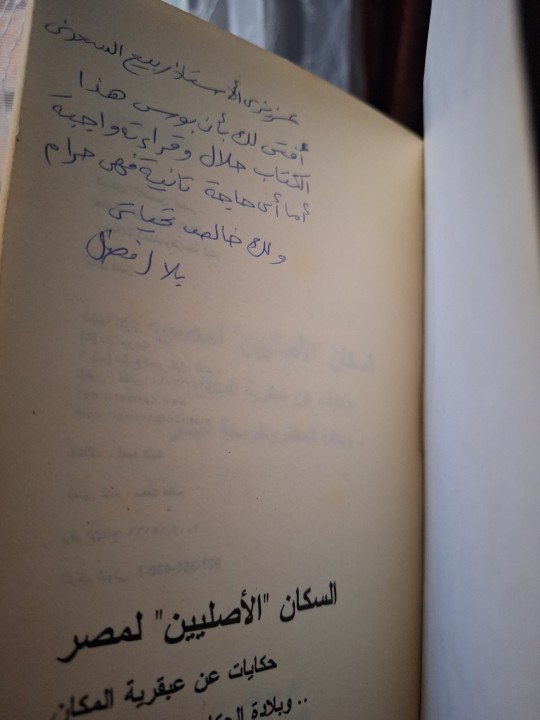 عزيزى الأستاذ ربيع السعدنى
أفتى لك بأن بوس هذا
الكتاب حلال وقراءته واجبة
أما أى حاجة تانية فهى حرام
ولك خالص تحياتى
بلال فضل
السكان "الأصليين" لمصر
حكايات عن عبقرية المكان
.. وبلادة